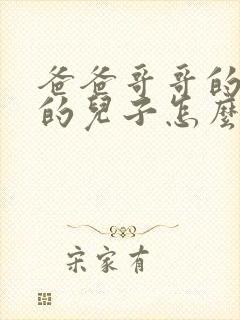 爸爸哥哥的
的兒子怎麼
宋家有